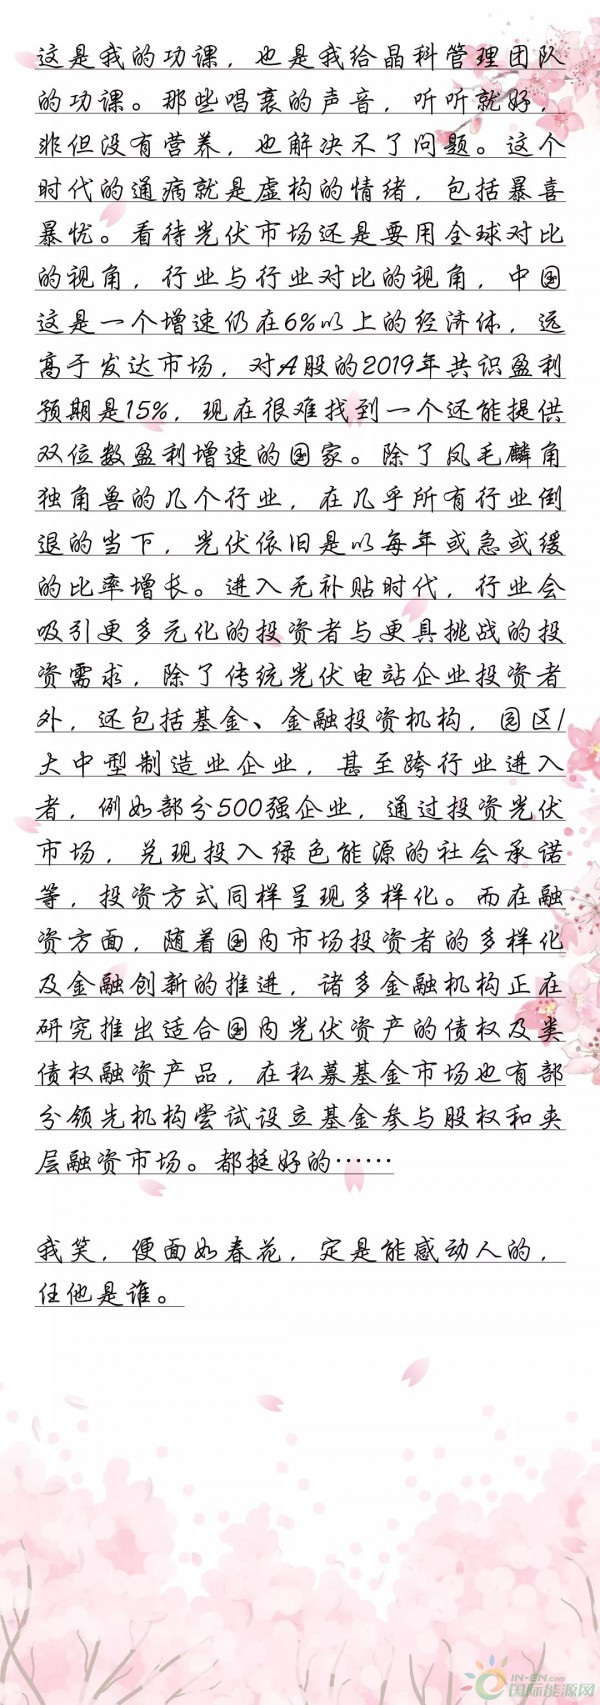 这是我的功课，也是我给晶科管理团队
的功课。那些唱衰的声音，听听就好，
非但没有营养，也解决不了问题。这个
时代的通病就是虚构的情绪，包括暴喜
暴忧。看待光伏市场还是要用全球对比
的视角，行业与行业对比的视角，中国
这是一个增速仍在6%以上的经济体，远
高于发达市场，对A股的2019年共识盈利
预期是15%，现在很难找到一个还能提供
双位数盈利增速的国家。除了凤毛麟角
独角兽的几个行业，在几乎所有行业倒
退的当下，光伏依旧是以每年或急或缓
的比率增长。进入无补贴时代，行业会
吸引更多元化的投资者与更具挑战的投
资需求，除了传统光伏电站企业投资者
外，还包括基金、金融投资机构，园区/
大中型制造业企业，甚至跨行业进入
者，例如部分500强企业，通过投资光伏
市场，兑现投入绿色能源的社会承诺
等，投资方式同样呈现多样化。而在融
资方面，随着国内市场投资者的多样化
及金融创新的推进，诸多金融机构正在
研究推出适合国内光伏资产的债权及类
债权融资产品，在私募基金市场也有部
分领先机构尝试设立基金参与股权和夹
层融资市场。都挺好的……
我笑，便面如春花，定是能感动人的，
任他是谁。
IN-EN.com
国际能源网